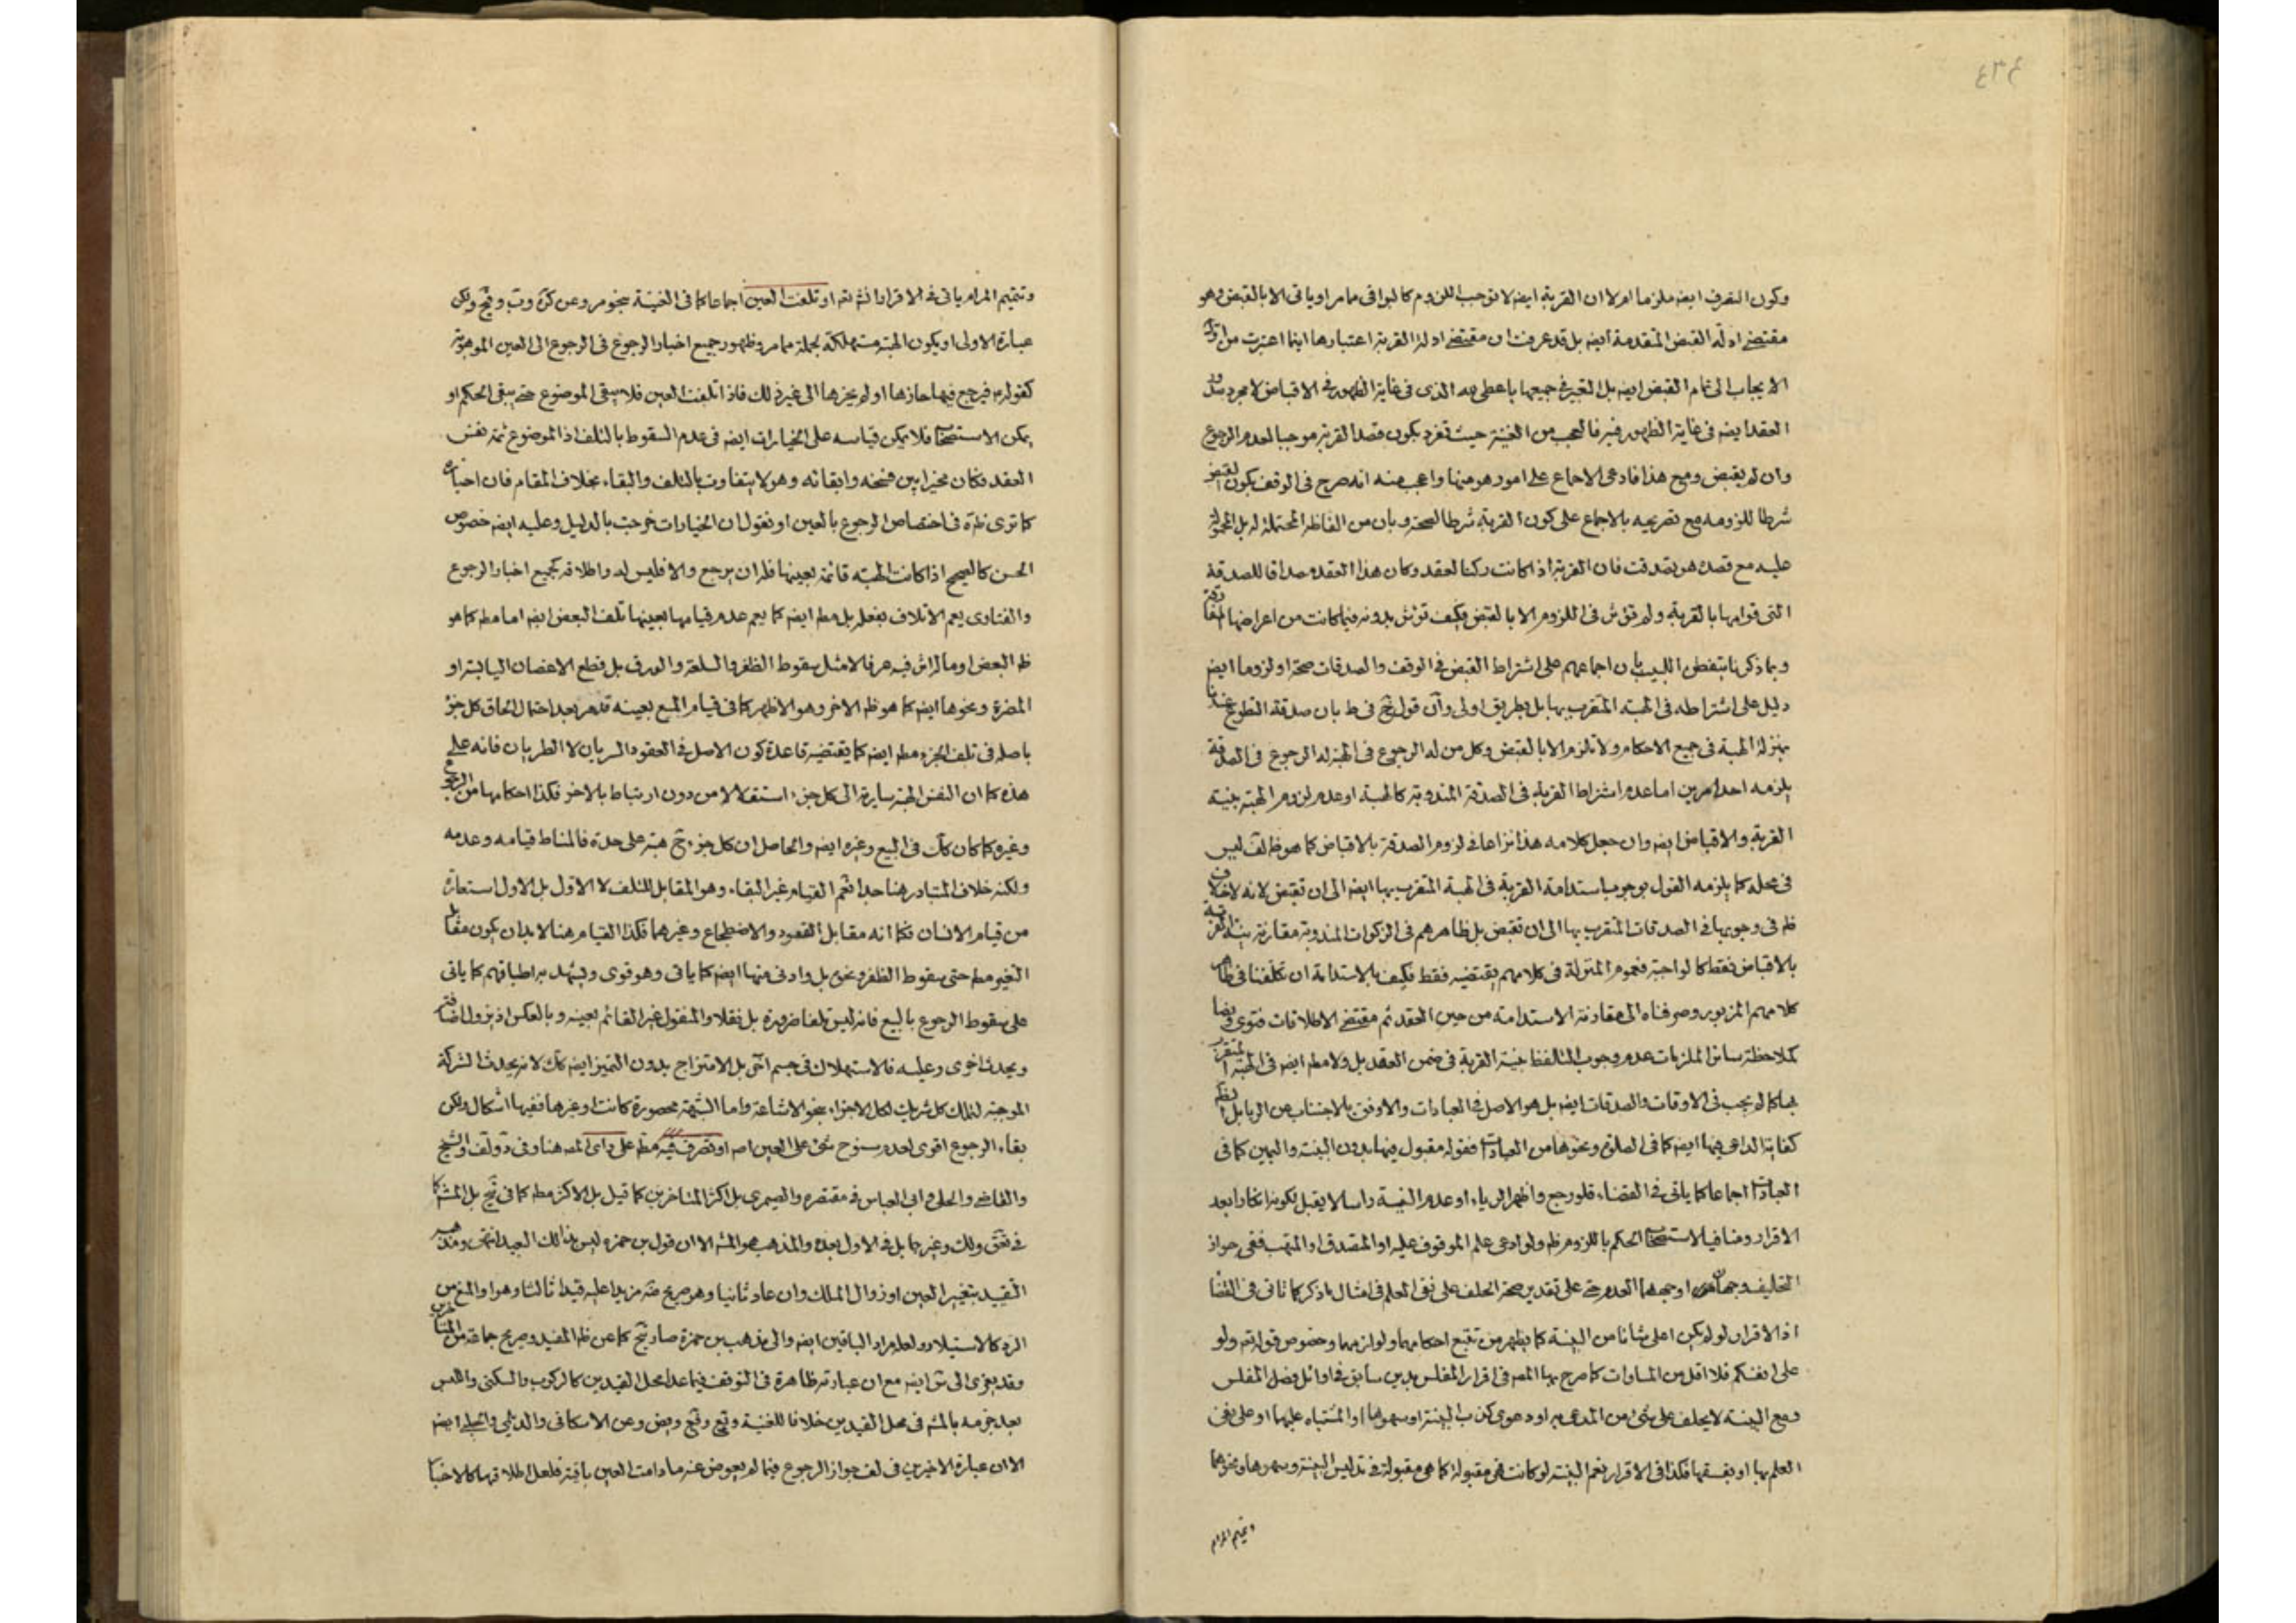 وكون التصرف ايضه ملزما ام لا ان القربة ايضه لا توجب اللزوم كالبواقى مما مر او ياتى الا بالقبض وهو
مقتضى ادلّة القبض المتقدمة ايضه بل قد عرفت ان مقتضى ادلة القربة اعتبارها اينما اعتبرت من اول
الايجاب الى تمام القبض ايضه بل التعبير فى جميعها باعطى لله الذى فى غاية الظهور فى الاقباض لا مجرد
العقد ايضه فى غاية الظهور فيه فالعجب من الغنية حيث تفرد بكون قصد القربة موجبا لعدم الرجوع
وان لم يقبض ومع هذا فادعى الاجماع على امور هو منها واعجب منه انه صرح فى الوقف بكون القبض
شرطا للزومه مع تصريحه بالاجماع على كون القربة شرطا لصحته وبان من الفاظه المحتملة له بل المحمولة
عليه مع قصده هو تصدقت فان القربة اذا كانت ركنا لعقد وكان هذا العقد مصداقا للصدقة
التى قوامها بالقربة ولم تؤثر فى اللزوم الا بالقبض فكيف تؤثر بدونه فيما كانت من اعراضها المفارقة
وبما ذكرنا يتفطن اللبيب بان اجماعهم على اشتراط القبض فى الوقف والصدقات صحة او لزوما ايضه
دليل على اشتراطه فى الهبة المتقرب بها بل بطريق اولى وان قول يخ فى ط بان صدقة التطوع عندنا
بمنزلة الهبة فى جميع الاحكام ولا تلزم الا بالقبض وكل من له الرجوع فى الهبة له الرجوع فى الصدقة
يلزمه احد امرين اما عدم اشتراط القربة فى الصدقة المندوبة كالهبة او عدم لزوم الهبة بنية
القربة والاقباض ايضه وان جعل كلامه هذا نزاعا فى لزوم الصدقة بالاقباض كما هو ظ لف ليس
فى محله كما يلزمه القول بوجوب استدامة القربة فى الهبة المتقرب بها ايضه الى ان تقبض لانه لا خلاف
ظه فى وجوبها فى الصدقات المتقرب بها الى ان تقبض بل ظاهرهم فى الزكوات المندوبة مقارنة نية القربة
بالاقباض فقط كالواجبة فعموم المنزلة فى كلامهم يقتضيه فقط فكيف بالاستدامة ان تكلفنا فى ظاهر
كلامهم المزبور وصرفناه الى مقارنة الاستدامة من حين العقد ثم مقتضى الاطلاقات فتوى ونصا
كملاحظة سائر الملزمات عدم وجوب التلفظ بنية القربة فى ضمن العقد بل ولا مطه ايضه فى الهبة المتقرب
بها كما لم يجب فى الاوقات والصدقات ايضه بل هو الاصل فى العبادات والاوفق بالاجتناب عن الريا بل
كفاية الداعى فيها ايضه كما فى الصلوة ونحوها من العبادات فقوله مقبول فيها بدون البينة واليمين كما فى
العبادات اجماعا كما ياتى فى القضاء فلو رجع واظهر الرياء او عدم النية راسا لا يقبل لكونه انكارا بعد
الاقرار ومنافيا لاستصحاب الحكم باللزوم ظه ولو ادعى علم الموقوف عليه او المتصدق او المتهب ففى جواز
التحليف وجهان اوجههما العدم حتى على تقدير صحة الحلف على نفى العلم فى امثال ما ذكر كما تاتى فى القضا
اذ الاقرار لو لم يكن اعلى شانا من البينة كما يظهر من تتبع احكامهما ولوازمهما وخصوص قوله تعه ولو
على انفسكم فلا اقل من المساوات كما صرح بها المصه فى اقرار المفلس بدين سابق فى اوائل فصل المفلس
ومع البينة لا يحلف على شئ من المدعى به او دعوى كذب البينة او سهوها او اشتباه عليها او على نفى
العلم بها او بفسقها فكذا فى الاقرار نعم البينة لو كانت فهى مقبولة كما هى مقبولة فى تدليس البينة وسهوها ونحوهما
وتتميم المرام
وتتميم المرام ياتى فى الاقرار انشه تعه او تلفت العين اجماعا كما فى الغنية بنحو مر وعن كرة وت وبج ولكن
عبارة الاولى او يكون الهبة مستهلكة بجملة مما مر وظهور جميع اخبار الرجوع فى الرجوع الى العين الموهوبة
كقوله ع فيرجع فيها حازها او لم يحزها الى غير ذلك فاذا تلفت العين فلا يبقى الموضوع حتى يبقى الحكم او
يمكن الاستصحاب فلا يمكن قياسه على الخيارات ايضه فى عدم السقوط بالتلف اذ الموضوع ثمة نفس
العقد فكان مخيرا بين فسخه وابقائه وهو لا يتفاوت بالتلف والبقاء بخلاف المقام فان اخباره
كما ترى ظاهرة فى اختصاص الرجوع بالعين او نقول ان الخيارات خرجت بالدليل وعليه ايضه خصوص
الحسن كالصحيح اذا كانت الهبة قائمة بعينها فله ان يرجع والا فليس له واطلاقه كجميع اخبار الرجوع
والفتاوى يعم الاتلاف بفعله بل مطه ايضه كما يعم عدم قيامها بعينها تلف البعض ايضه اما مطه كما هو
ظه البعض او ماله اثر فيه عرفا لا مثل سقوط الظفر والسلعة والعرق بل قطع الاغصان اليابسة او
المضرة ونحوها ايضه كما هو ظه الاخر وهو الاظهر كما فى قيام المبيع بعينه قد مر بعد احتمال الحاق كل جزء
باصله فى تلف الجزء مطه ايضه كما يقتضيه قاعدة كون الاصل فى العقود السريان لا الطريان فانه على
هذه كما ان النفس الهبة سارية الى كل جزء استقلالا من دون ارتباط بالاخر فكذا احكامها من الرجوع
وغيره كما كان كك فى البيع وغيره ايضه والحاصل ان كل جزء ح هبة على حدة فالمناط قيامه وعدمه
ولكنه خلاف المتبادر هنا جدا فثم القيام غير البقاء وهو المقابل للتلف لا الاول بل الاول استعارة
من قيام الانسان فكما انه مقابل القعود والاضطجاع وغيرهما فكذا القيام هنا لا بد ان يكون مقابل
التغير مطه حتى سقوط الظفر ونحوه بل وادنى منها ايضه كما ياتى وهو قوى ويشهد به اطباقهم كما ياتى
على سقوط الرجوع بالبيع فانه ليس تلفا ضرورة بل نقلا والمنقول غير القائم بعينه وبالعكس اذ يزول اضافة
ويحدث اخرى وعليه فالاستهلاك فى جسم اخر بل الامتزاج بدون التميز ايضه كك لانه يحدث الشركة
الموجبة لتملك كل شريك لكل الاجزاء بنحو الاشاعة واما الشبهة محصورة كانت او غيرها ففيها اشكال ولكن
بقاء الرجوع اقوى لعدم سنوح شئ على العين اصه او تصرف فيه مطه على راى المصه هنا وفى د ولف والشيخ
والقاضى والحلى وابى العباس فى مقتصره والصيمرى بل اكثر المتاخرين كما قيل بل الاكثر مطه كما فى بج بل المشه كما
فى تنق ولك وغيرهما بل فى الاول بعده والمذهب هو المشه الا ان قول بن حمزة ليس بذالك البعيد انتهى ومذهبه
التقييد بتغير العين او زوال الملك وان عاد ثانيا وهو صريح مزيدا عليه قيدا ثالثا وهو او المنع من
الرد كالاستيلاد ولعله مراد الباقين ايضه والى مذهب بن حمزة صار بج كما عن ظه المفيد وصريح جماعة من المتاخرين
وقد يعزى الى س ايضه مع ان عبارته ظاهرة فى التوقف فيما عدا محل القيدين كالركوب والسكنى واللبس
بعد جزمه بالمشه فى محل القيدين خلافا للغنية ويع وفع وبض وعن الاسكافى والديلمى والحلبى ايضه
الا ان عبارة الاخيرين فى لف جواز الرجوع فيما لم يعوض عنه ما دامت العين باقية فلعل اطلاقهما كالاخبار